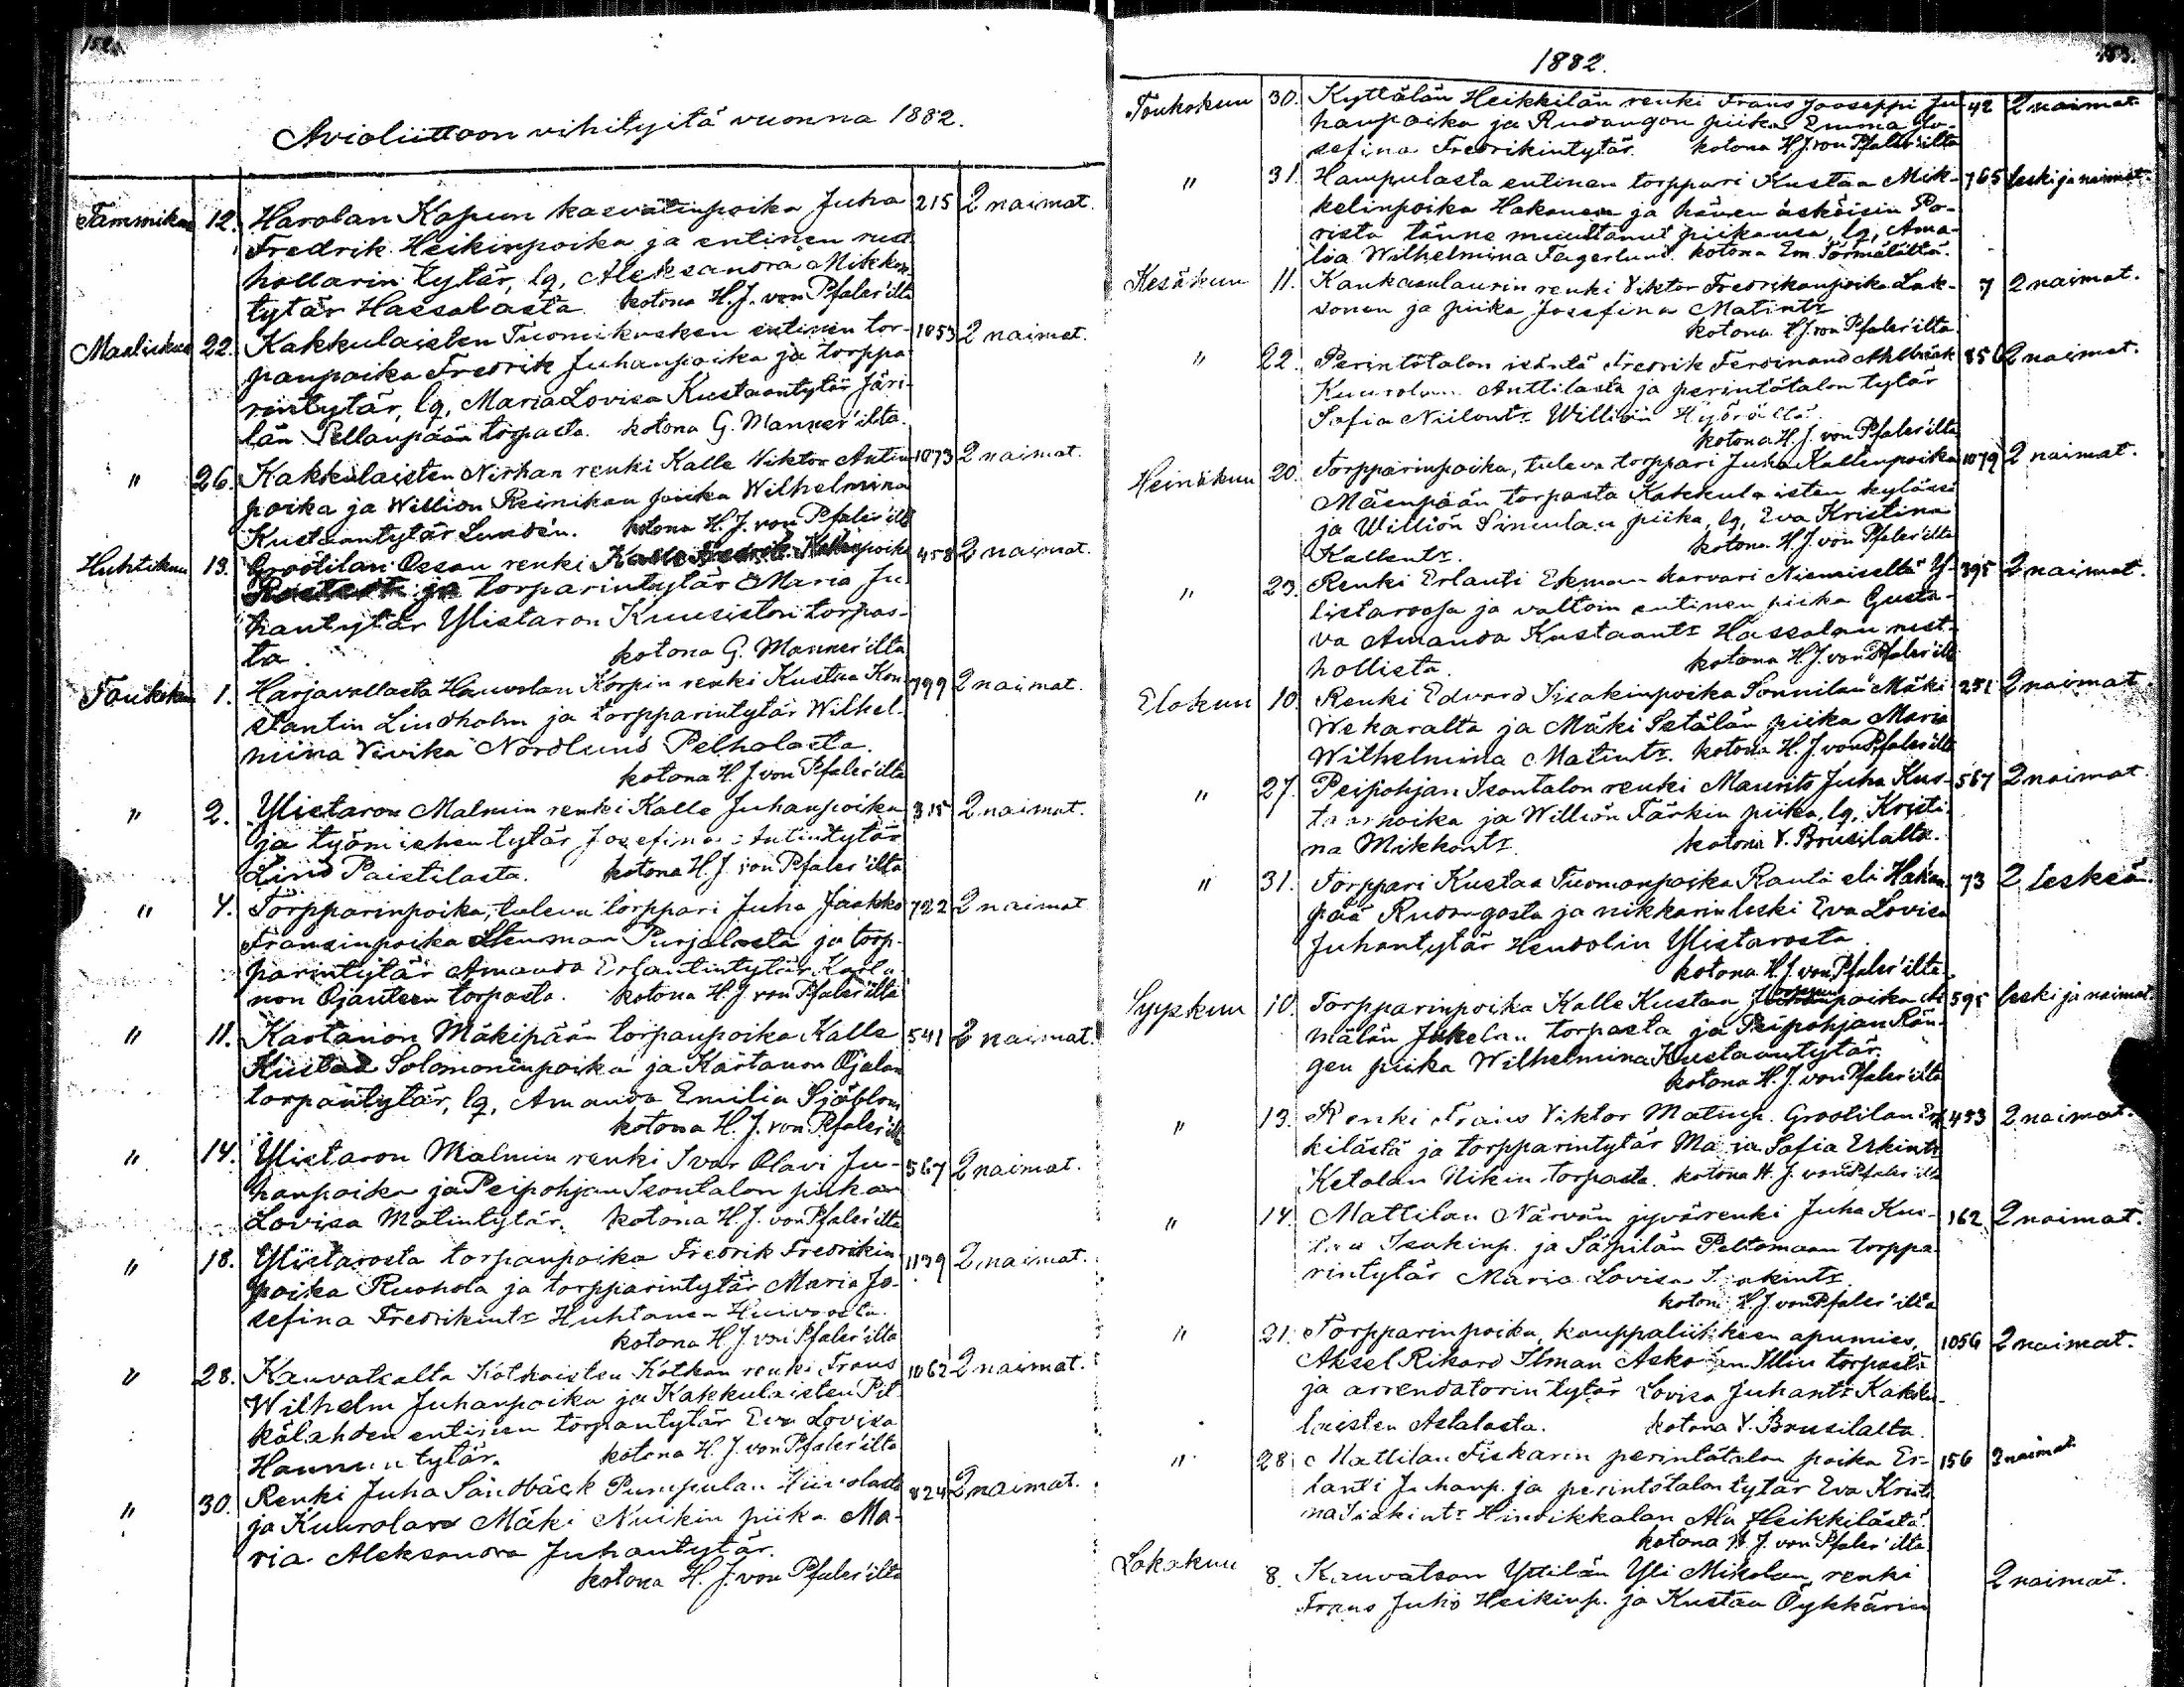 152.
Avioliittoon vihityitä vuonna 1882.
Tammikuu 12. Harolan Kapun kasvatinpoika Juha 215 2 naimat.
Fredrik Heikinpoika ja entinen rust-
hollarin tytär, lq, Aleksandra Mikkon-
tytär Hassalasta. kotona H. J. von Pfaler'ilta
Maaliskuu 22. Kakkulaisten Tuomikosken entinen tor- 1053 2 naimat.
panpoika Fredrik Juhanpoika ja torppa-
rintytär, lq, Maria Lovisa Kustaantytär Järi-
län Pellanpään torpasta. kotona G. Manner'ilta.
" 26. Kakkulaisten Nirhan renki Kalle Viktor Antin 1073 2 naimat.
poika ja Williön Reinikan piika Wilhelmina
Kustaantytär Lundén. kotona H. J. von Pfaler'ilta
Huhtikuu 13. Grootilan Ossan renki Kalle Fredrik Kallenpoika 458 2 naimat.
ja torparintytär Maria Ju-
hantytär Ylistaron Kuusiston torpas-
ta. kotona G. Manner'ilta
Toukokuu 1. Harjavallasta Hauvolan Korpin renki Kustaa Kon- 799 2 naimat.
stantin Lindholm ja torpparintytär Wilhel-
miina Vivika Nordlund Pelholasta.
kotona H. J. von Pfaler'ilta
" 2. Ylistaron Malmin renki Kalle Juhanpoika 315 2 naimat.
ja työmiehen tytär Josefina Antintytär
Lind Paistilasta. kotona H. J. von Pfaler'ilta
" 4. Torpparinpoika, tuleva torppari Juha Jaakko 722 2 naimat
Fransinpoika Stenman Purjalasta ja torp-
parintytär Amanda Erlantintytär Karta-
non Ojanteen torpasta. kotona H. J. von Pfaler'ilta
" 11. Kartanon Mäkipään torpanpoika Kalle 541 2 naimat.
Kustaa Solomoninpoika ja Kartanon Ojalan
torpantytär, lq, Amanda Emilia Sjöblom
kotona H. J. von Pfaler'ilta
" 14. Ylistaron Malmin renki Ivar Olavi Ju- 567 2 naimat.
hanpoika ja Peipohjan Isontalon piika
Lovisa Matintytär. kotona H. J. von Pfaler'ilta
" 18. Ylistarosta torpanpoika Fredrik Fredrikin 1139 2 naimat.
poika Ruohola ja torpparintytär Maria Jo-
sefina Fredrikintr Huhtanen
kotona H. J. von Pfaler'ilta
" 28. Kauvatsalta Kotkaisten Kotkan renki Frans 1062 2 naimat.
Wilhelm Juhanpoika ja Kakkulaisten Pit-
kälahden entinen torpantytär Eva Lovisa
Hannuntytär. kotona H. J. von Pfaler'ilta
" 30. Renki Juha Sandbäck Pumpulan 824 2 naimat.
ja Kuurolan Mäki Nuikin piika Ma-
ria Aleksandra Juhantytär.
kotona H. J. von Pfaler'ilta
153.
1882.
Toukokuu 30. Kyttälän Heikkilän renki Frans Jooseppi Ju- 42 2 naimat.
hanpoika ja Rudangon piika Emma Jo-
sefina Fredrikintytär. kotona H. J. von Pfaler'ilta
" 31. Hampulasta entinen torppari Kustaa Mik- 765 leski ja naimat.
kelinpoika Hakanen ja hänen äsköisin Po-
rista tänne muuttanut piikansa, lq, Ama-
lia Wilhelmina Fagerlund. kotona Em. Törmälältä.
Kesäkuu 11. Kankaanlaurin renki Viktor Fredrikanpoika Lak- 7 2 naimat.
sonen ja piika Josefina Matintr
kotona H. J. von Pfaler'ilta.
" 22. Perintötalon isäntä Fredrik Ferdinand Ahlbäck 856 2 naimat.
Kuurolan Anttilasta ja perintötalon tytär
Sofia Niilontr Williön
kotona H. J. von Pfaler'ilta
Heinäkuu 20. Torpparinpoika, tuleva torppari Juha Kallenpoika 1079 2 naimat.
Mäenpään torpasta Kakkulaisten kylässä
ja Williön Simulan piika, lq, Eva Kristina
Kallentr. kotona H. J. von Pfaler'ilta
" 23. Renki Erlanti Ekman karvari Niemiseltä Y- 395 2 naimat.
listarossa ja valtoin entinen piika Gusta-
va Amanda Kustaantr Hassalan rust-
hollista. kotona H. J. von Pfaler'ilta
Elokuu 10. Renki Edvard Iisakinpoika Sonnilan Mäki 251 2 naimat
Wekaralta ja Mäki Setälän piika Maria
Wilhelmina Matintr. kotona H. J. von Pfaler'ilta
" 27. Peipohjan Isontalon renki Maurits Juha Kus- 567 2 naimat.
taanpoika ja Williön Färkin piika, lq, Kristi-
na Mikkontr. kotona V. Brusilalta.
" 31. Torppari Kustaa Tuomanpoika Ranta eli Hakan- 73 2 leskeä.
pää Rudangosta ja nikkarin leski Eva Lovisa
Juhantytär Hendolin Ylistarosta
kotona H. J. von Pfaler'ilta.
Syyskuu 10. Torpparinpoika Kalle Kustaa 595 leski ja naimat
mälän Jukolan torpasta ja Peipohjan Rän-
gen piika Wilhelmina Kustaantytär.
kotona H. J. von Pfaler'ilta
" 13. Renki Frans Viktor Matinp. Grootilan Erk- 453 2 naimat.
kilästä ja torpparintytär Maria Sofia Erkintr
Ketolan Nikin torpasta. kotona H. J. von Pfaler'ilta
" 14. Mattilan Närvän jyvärenki Juha Kus- 162 2 naimat.
taa Isakinp. ja Säpilän Peltomaan torppa-
rintytär Maria Lovisa Isakintr.
kotona H. J. von Pfaler'ilta
" 21. Torpparinpoika, kauppaliikkeen apumies, 1056 2 naimat.
Aksel Rikard Ilman Askolan Illin torpasta
ja arrendatorin tytär Lovisa Juhantr Kakku-
laisten Astalasta. kotona V. Brusilalta.
" 28. Mattilan Fiskarin perintötalon poika Er- 156 2 naimat
lanti Juhanp. ja perintötalon tytär Eva Kristi-
na Isakintr Hindikkalan Ala Heikkilästä.
kotona H. J. von Pfaler'ilta
Lokakuu 8. Kauvatsan Yttilän Yli Mikolan renki 2 naimat.
Frans Juho Heikinp. ja Kustaa Öykkärin